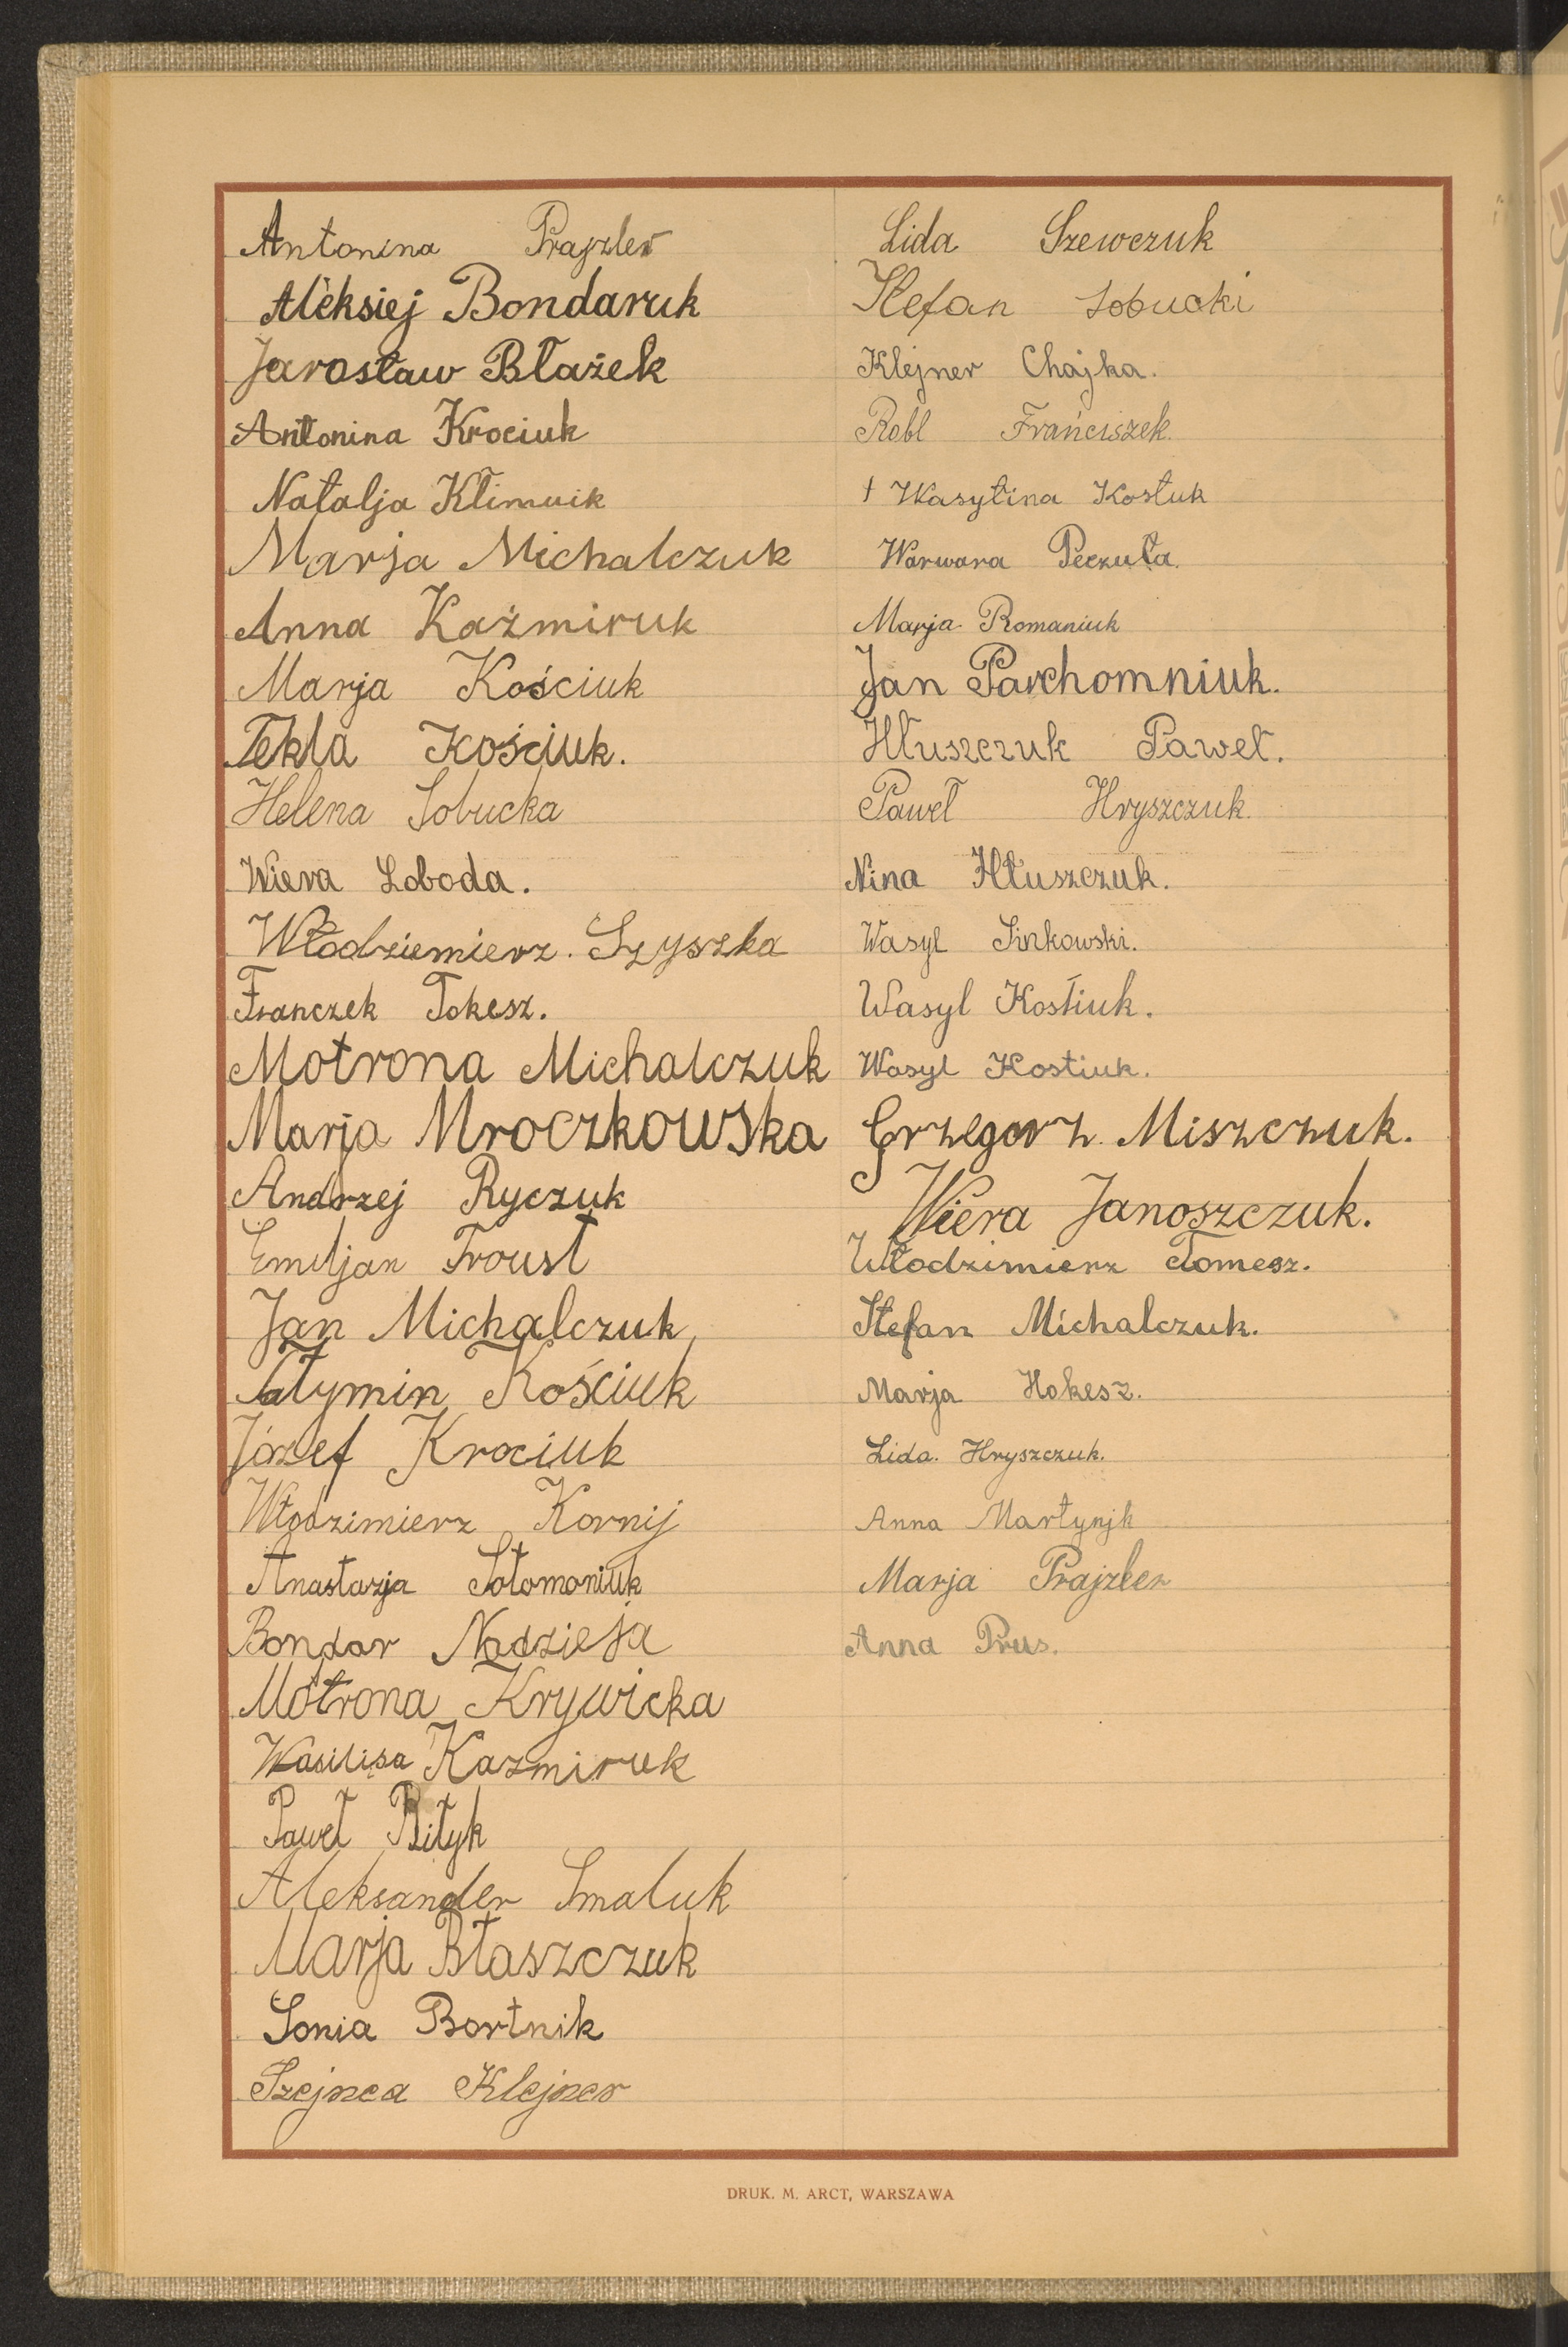 Antonina Prajzler
Aleksiej Bondaruk
Jarosław Błażek
Antonina Krociuk
Natalja Klimuik
Marja Michalczuk
Anna Kaźmiruk
Marja Kościuk
Tekla Kościuk.
Helena Sobucka
Wiera Łoboda.
Włodziemierz. Szyszka
Franczek Tokesz.
Motrona Michalczuk
Marja Mroczkowska
Andrzej Ryczuk
Emiljan Troust
Jan Michalczuk
Kościuk
Józef Krociuk
Włodzimierz Kornij
Anastazja Sołomoniuk
Bondar Nadzieja
Motrona Krywicka
Wasilisa Kazmiruk
Paweł Biłyk
Aleksander Smaluk
Marja Błaszczuk
Sonia Bortnik
Szejnca Klejner
Lida Szewczuk
Stefan Sobucki
Klejner Chajka.
Robl Frańciszek.
† Wasylina Kostuk
Warwara Peczuła.
Marja Romaniuk
Jan Parchomniuk.
Hłuszczuk Paweł.
Paweł Hryszczuk.
Nina Hłuszczuk.
Wasyl Sinkowski.
Wasyl Kostiuk.
Wasyl Kostiuk.
Grzegorz Miszczuk.
Wiera Janoszczuk.
Włodzimierz Tomesz.
Stefan Michalczuk.
Marja Hokesz.
Lida. Hryszczuk.
Anna Martynjk
Marja Prajzler
Anna Prus.
DRUK. M. ARCT, WARSZAWA